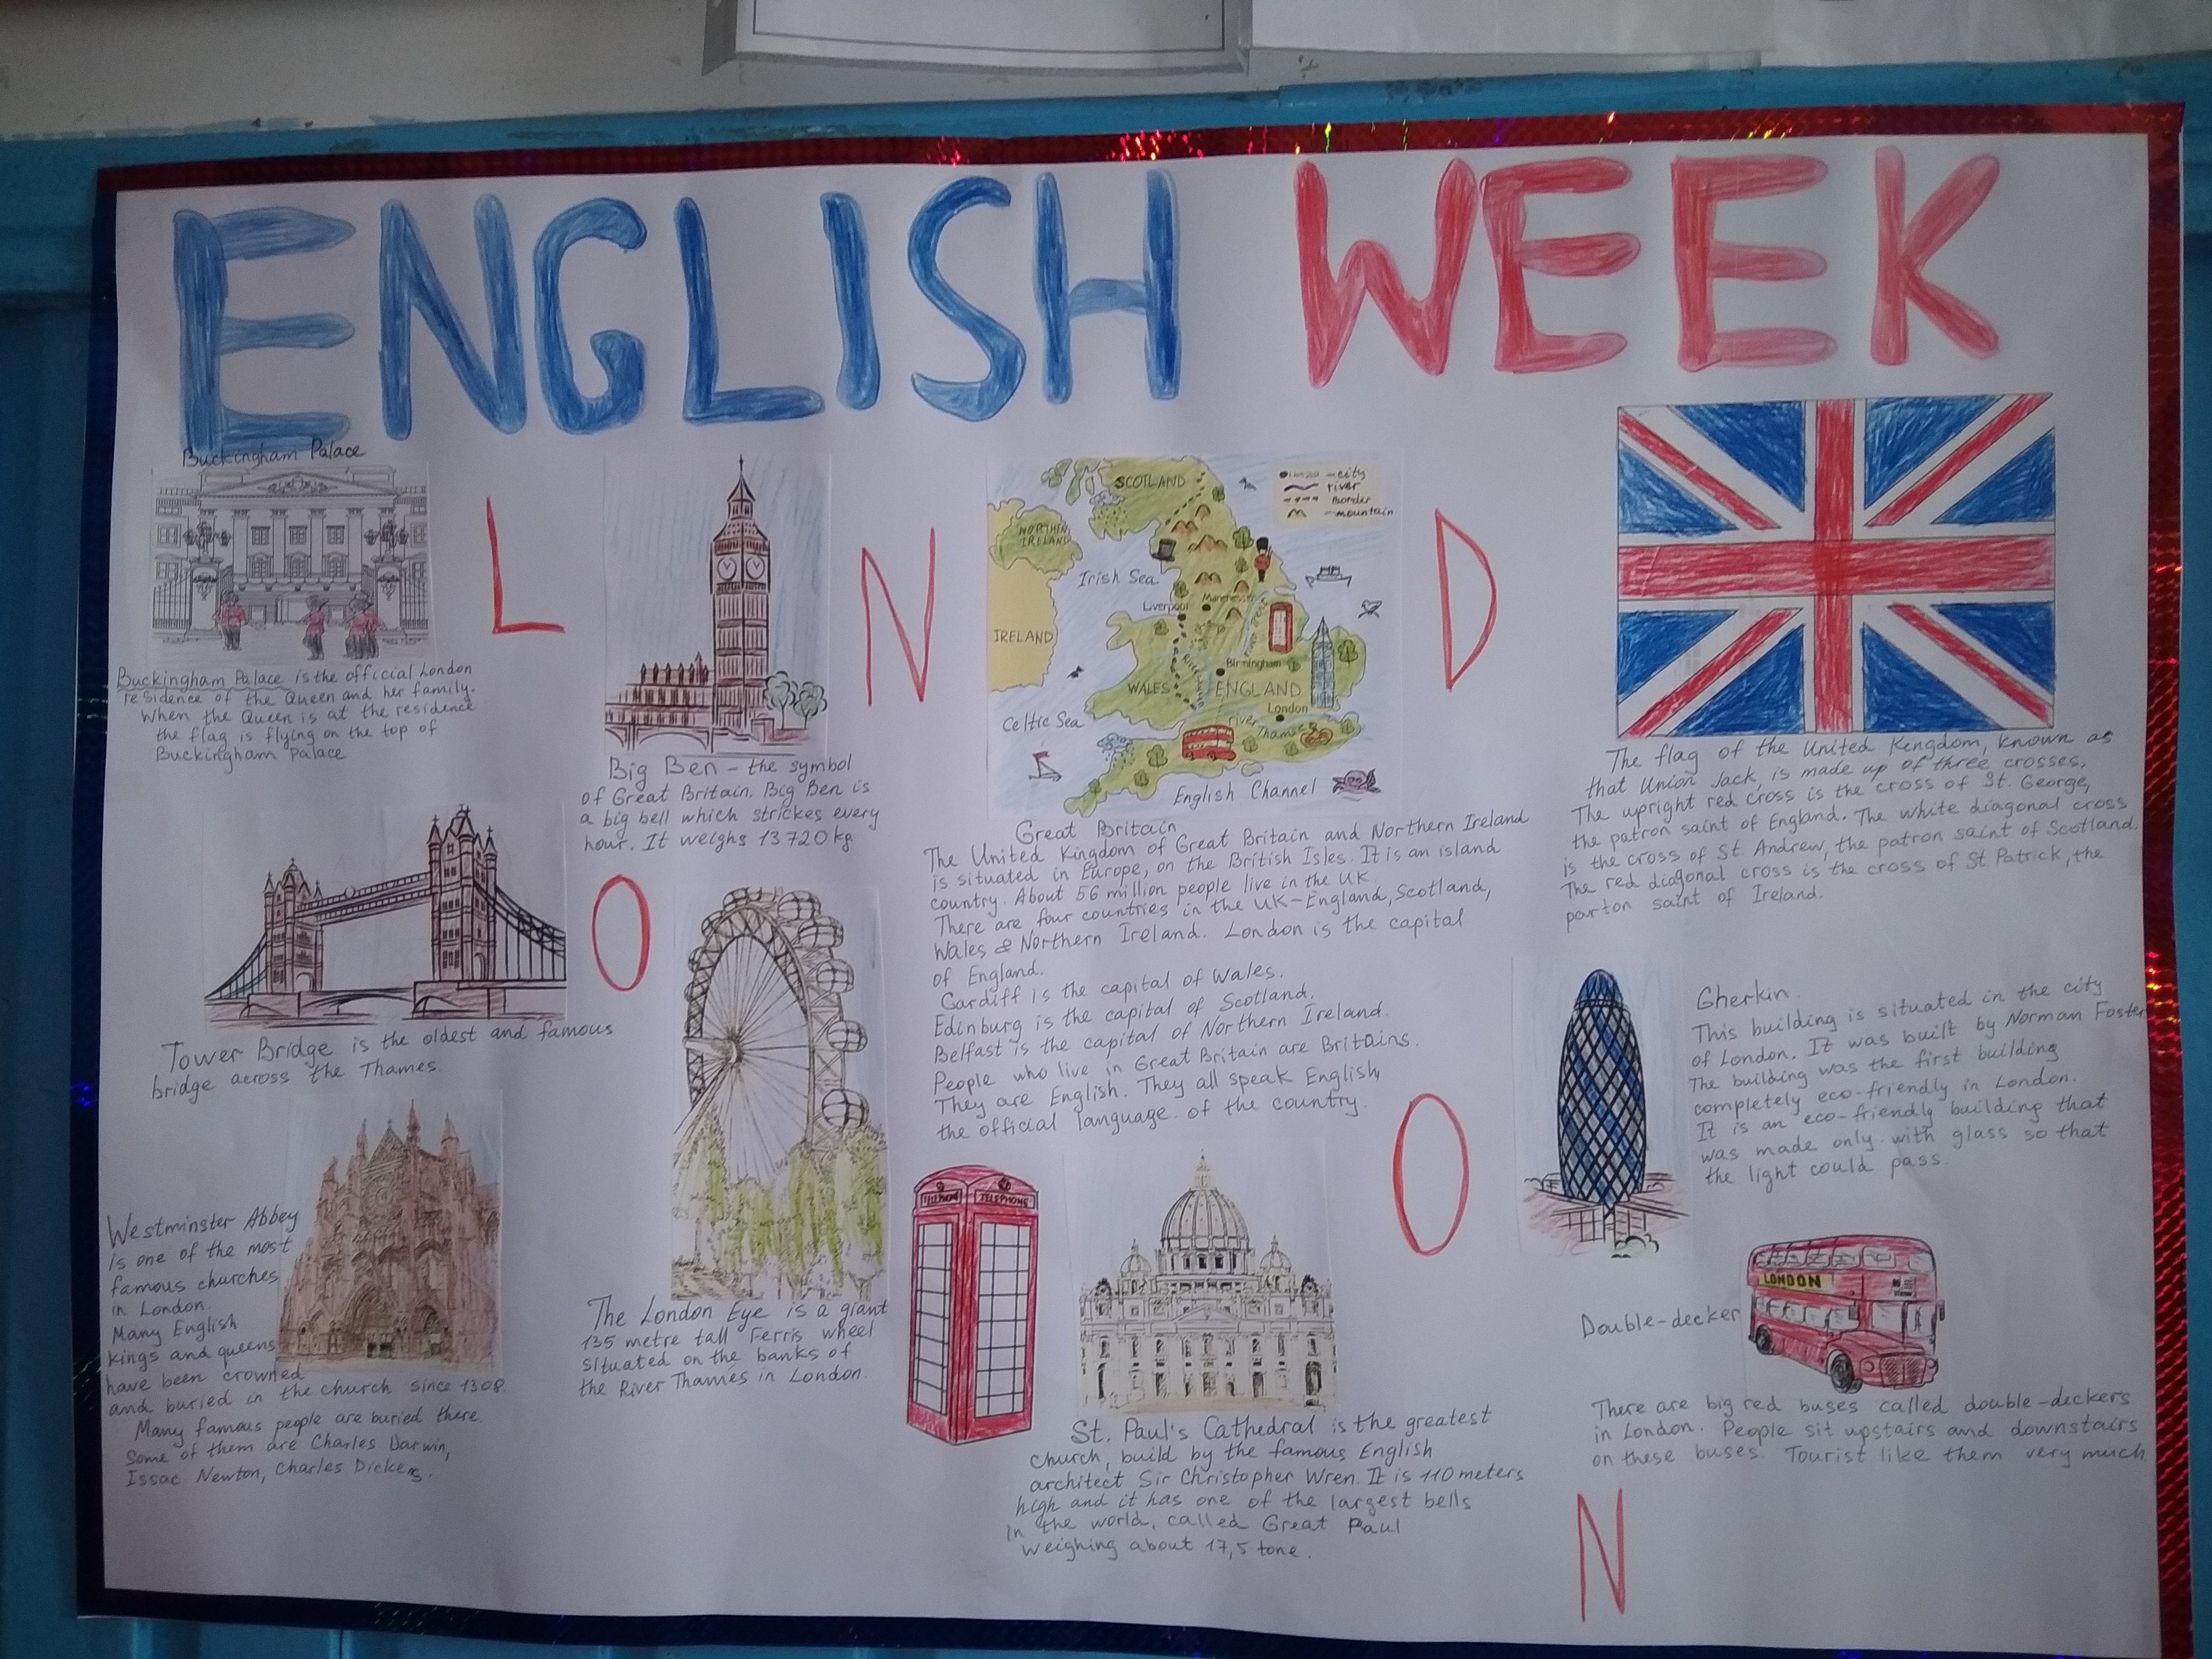 ENGLISH WEEK
Buckingham Palace
L
Buckingham Palace is the official London
residence of the Queen and her family.
When the Queen is at the residence
the flag is flying on the top of
Buckingham Palace
Big Ben – the symbol
of Great Britain. Big Ben is
a big bell which strickes every
hour. It weighs 13720 kg
N
SCOTLAND
NORTHERN
IRELAND
– city
– river
– border
– mountain
Irish Sea
Liverpool
Manchester
IRELAND
Birmingham
WALES
ENGLAND
London
Celtic Sea
river
Thames
English Channel
D
Great Britain
The United Kingdom of Great Britain and Northern Ireland
is situated in Europe, on the British Isles. It is an island
country. About 56 million people live in the UK.
There are four countries in the UK – England, Scotland,
Wales & Northern Ireland. London is the capital
of England.
Cardiff is the capital of Wales.
Edinburg is the capital of Scotland.
Belfast is the capital of Northern Ireland.
People who live in Great Britain are Britains.
They are English. They all speak English,
the official language of the country.
The flag of the United Kingdom, known as
that Union Jack, is made up of three crosses.
The upright red cross is the cross of St. George,
the patron saint of England. The white diagonal cross
is the cross of St. Andrew, the patron saint of Scotland.
The red diagonal cross is the cross of St Patrick, the
parton saint of Ireland.
Tower Bridge is the oldest and famous
bridge across the Thames.
O
Westminster Abbey
is one of the most
famous churches
in London.
Many English
kings and queens
have been crowned
and buried in the church since 1308.
Many famous people are buried there.
Some of them are Charles Darwin,
Issac Newton, Charles Dickens.
The London Eye is a giant
135 metre tall Ferris wheel
situated on the banks of
the River Thames in London.
TELEPHONE
TELEPHONE
St. Paul's Cathedral is the greatest
church, build by the famous English
architect Sir Christopher Wren. It is 110 meters
high and it has one of the largest bells
in the world, called Great Paul
weighing about 17,5 tone.
O
Gherkin.
This building is situated in the city
of London. It was built by Norman Foster
The building was the first building
completely eco-friendly in London.
It is an eco-friendly building that
was made only with glass so that
the light could pass.
LONDON
Double-decker
There are big red buses called double-deckers
in London. People sit upstairs and downstairs
on these buses. Tourist like them very much
N